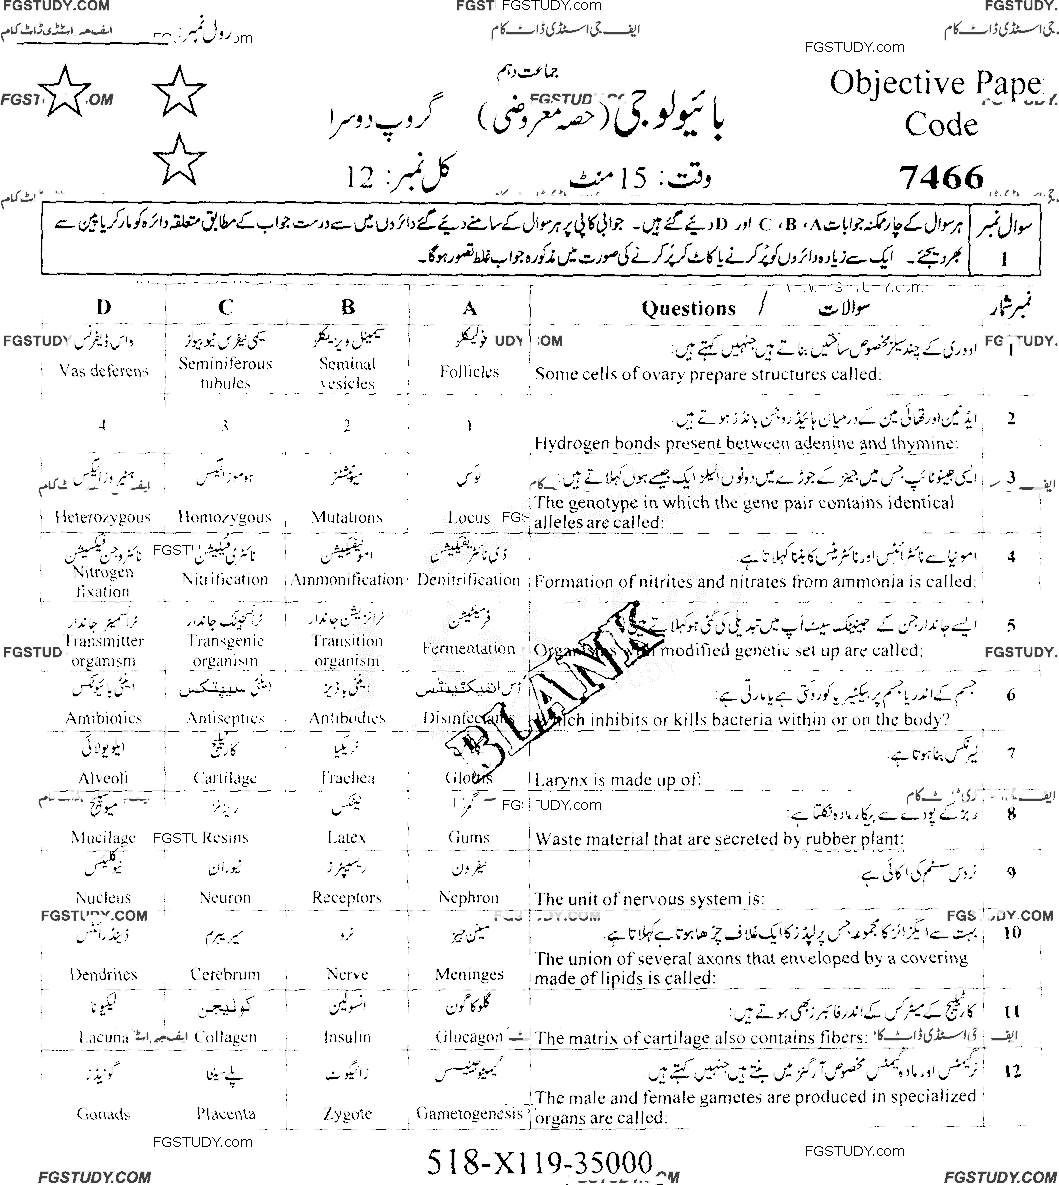 FGSTUDY.COM
FGSTUDY.com
FGSTUDY.
ایف جی اسٹڈی ڈاٹ کام
رول نمبر:
FGSTUDY.com
جماعت دہم
Objective Pape
بائیولوجی (حصہ معروضی) گروپ دوسرا
Code
وقت: 15 منٹ
کل نمبر: 12
7466
سوال نمبر 1
ہر سوال کے چار ممکنہ جوابات A، B، C اور D دیئے گئے ہیں۔ جوابی کاپی پر ہر سوال کے سامنے دیئے گئے دائروں میں سے درست جواب کے مطابق متعلقہ دائرہ کو مارکر یا پین سے
بھر دیجئے۔ ایک سے زیادہ دائروں کو پُر کرنے یا کاٹ کر پُر کرنے کی صورت میں مذکورہ جواب غلط تصور ہوگا۔
D C B A Questions / سوالات نمبر شمار
واس ڈیفرنس سیمی نیفرس ٹیوبیولز سیمینل ویزیکلز فولیکلز اووری کے چند سیلز مخصوص ساختیں بناتے ہیں جنہیں کہتے ہیں: 1
Vas deferens Seminiferous tubules Seminal vesicles Follicles Some cells of ovary prepare structures called:
ایڈنین اور تھائی مین کے درمیان ہائیڈروجن بانڈز ہوتے ہیں: 2
4 3 2 1 Hydrogen bonds present between adenine and thymine:
ہیٹروزائیگس ہوموزائیگس میوٹیشنز لوکس ایسی جینوٹائپ جس میں جینز کے جوڑے میں دونوں الیلز ایک جیسے ہوں کہلاتے ہیں: 3
Heterozygous Homozygous Mutations Locus The genotype in which the gene pair contains identical
alleles are called:
نائٹروجن فکسیشن نائٹریفیکیشن امونیفیکیشن ڈی نائٹریفیکیشن امونیا سے نائٹرائٹس اور نائٹریٹس کا بننا کہلاتا ہے: 4
Nitrogen fixation Nitrification Ammonification Denitrification Formation of nitrites and nitrates from ammonia is called:
ٹرانسمیٹر جاندار ٹرانسجینک جاندار ٹرانزیشن جاندار فرمنٹیشن ایسے جاندار جن کے جینیٹک سیٹ اپ میں تبدیلی کی گئی ہو کہلاتے ہیں: 5
Transmitter organism Transgenic organism Transition organism Fermentation modified genetic set up are called:
BLANK
اینٹی بائیوٹکس اینٹی سیپٹکس اینٹی باڈیز جسم کے اندر یا جسم پر بیکٹیریا کو روکتی ہے یا مارتی ہے: 6
Antibiotics Antiseptics Antibodies Disinfectants Which inhibits or kills bacteria within or on the body?
ایلویولائی کارٹلیج ٹریکیا لیرنکس بنا ہوتا ہے: 7
Alveoli Cartilage Trachea Glottis Larynx is made up of:
میوسیلیج ریزنز لیٹکس گمز ربڑ کے پودے سے بیکار مادہ نکلتا ہے: 8
Mucilage Resins Latex Gums Waste material that are secreted by rubber plant:
نیوکلیس نیوران ریسیپٹرز نیفرون نروس سسٹم کی اکائی ہے 9
Nucleus Neuron Receptors Nephron The unit of nervous system is:
ڈینڈرائٹس سیریبرم نرو میننجیز بہت سے ایگزانز کا مجموعہ جس پر لپڈز کا ایک غلاف چڑھا ہوتا ہے کہلاتا ہے: 10
Dendrites Cerebrum Nerve Meninges The union of several axons that enveloped by a covering
made of lipids is called:
لیکیونا کولیجن انسولین گلوکاگون کارٹلیج کے میٹرکس کے اندر فائبرز بھی ہوتے ہیں: 11
Lacuna Collagen Insulin Glucagon The matrix of cartilage also contains fibers:
گونیڈز پلے سینٹا زائیگوٹ گیمیٹوجینیسس نر گیمٹس اور مادہ گیمٹس مخصوص آرگنز میں بنتے ہیں جنہیں کہتے ہیں 12
Gonads Placenta Zygote Gametogenesis The male and female gametes are produced in specialized
organs are called:
FGSTUDY.com
FGSTUDY.com
518-X119-35000
FGSTUDY.COM
FGSTUDY.COM